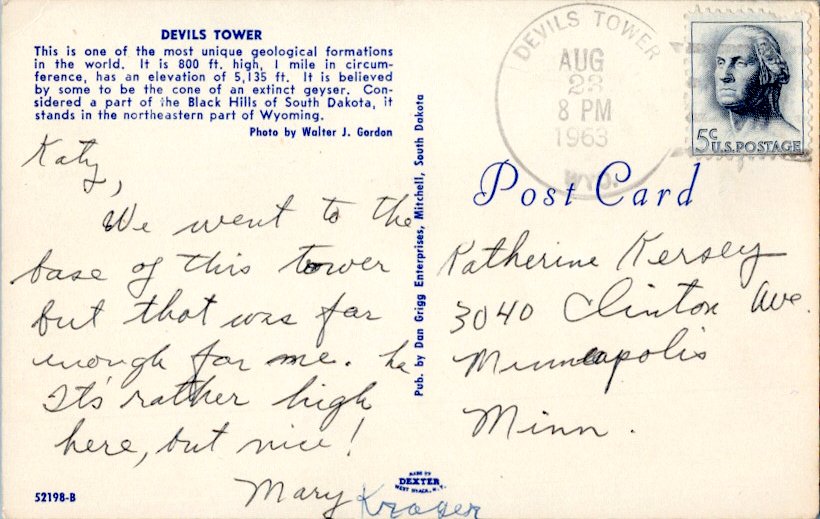 DEVILS TOWER
This is one of the most unique geological formations
in the world. It is 800 ft. high, 1 mile in circum-
ference, has an elevation of 5,135 ft. It is believed
by some to be the cone of an extinct geyser. Con-
sidered a part of the Black Hills of South Dakota, it
stands in the northeastern part of Wyoming.
Photo by Walter J. Gordon
Katy,
We went to the
base of this tower
but that was far
enough for me. ha
It's rather high
here, but nice!
Mary Kroger
52198-B
Pub. by Dan Grigg Enterprises, Mitchell, South Dakota
MADE BY
DEXTER
WEST NYACK, N.Y.
DEVILS TOWER
AUG
23
8 PM
1963
WYO.
5c
U.S. POSTAGE
Post Card
Katherine Kersey
3040 Clinton Ave.
Minneapolis
Minn.